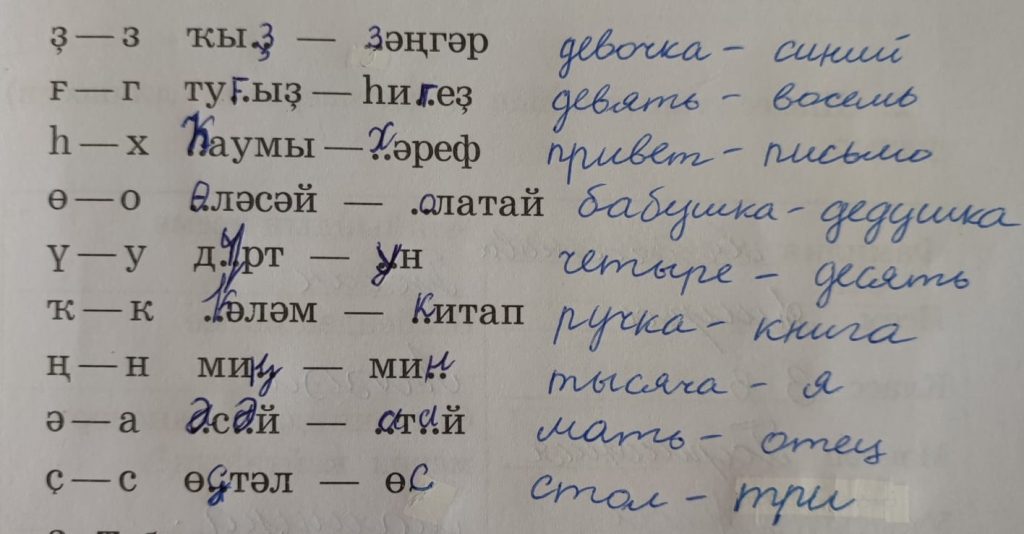 ҙ — з ҡы.ҙ — зәңгәр девочка - синий
ғ — г туғ.ыҙ — һиг.еҙ девять - восемь
һ — х һаумы — х..әреф привет - письмо
ө — о ө.ләсәй — .олатай бабушка - дедушка
ү — у д.үрт — ун четыре - десять
ҡ — к .ҡәләм — китап ручка - книга
ң — н миң — мин тысяча - я
ә — а ә.сә.й — а.та.й мать - отец
ҫ — с өҫтәл — өс стол - три